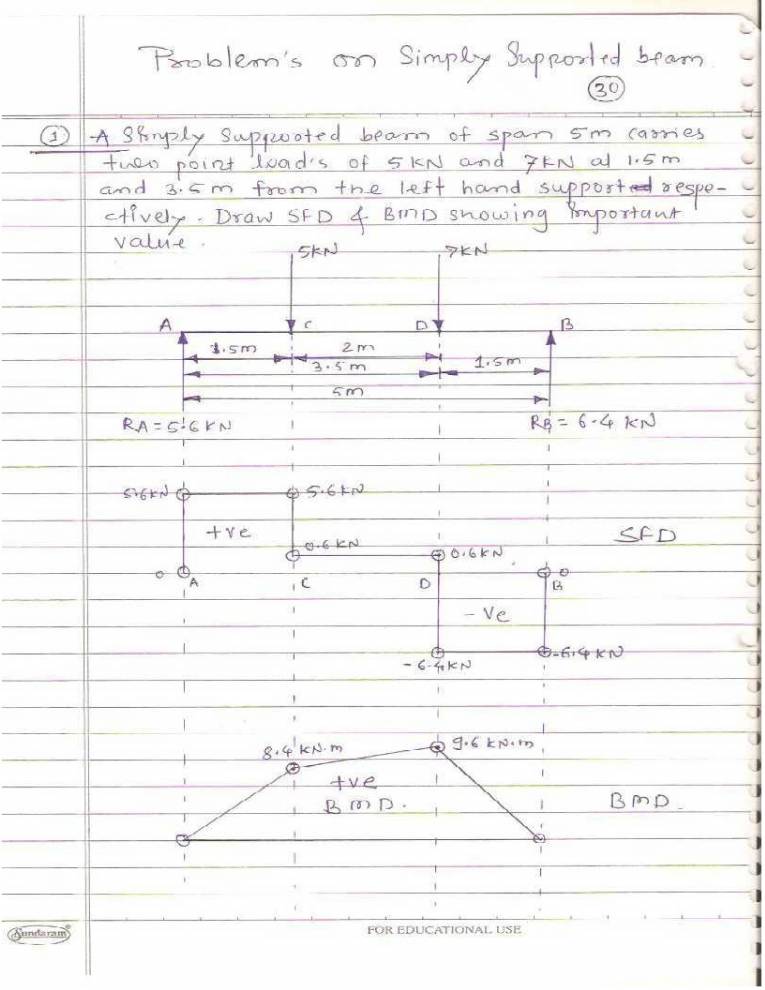 Problem's on Simply Supported beam
30
1 A Simply Suppooted beam of span 5m carries
two point load's of 5KN and 7KN at 1.5m
and 3.5m from the left hand supported respe-
ctively. Draw SFD & BMD showing Important
value.
5KN 7KN
A C D B
1.5m 2m 1.5m
3.5m
5m
RA = 5.6 KN RB = 6.4 KN
5.6KN 5.6KN
+ve 0.6KN 0.6KN SFD
0 A C D B 0
-Ve
-6.4KN -6.4KN
8.4 KN.m 9.6 KN.m
+ve
BMD. BMD.
Sundaram FOR EDUCATIONAL USE